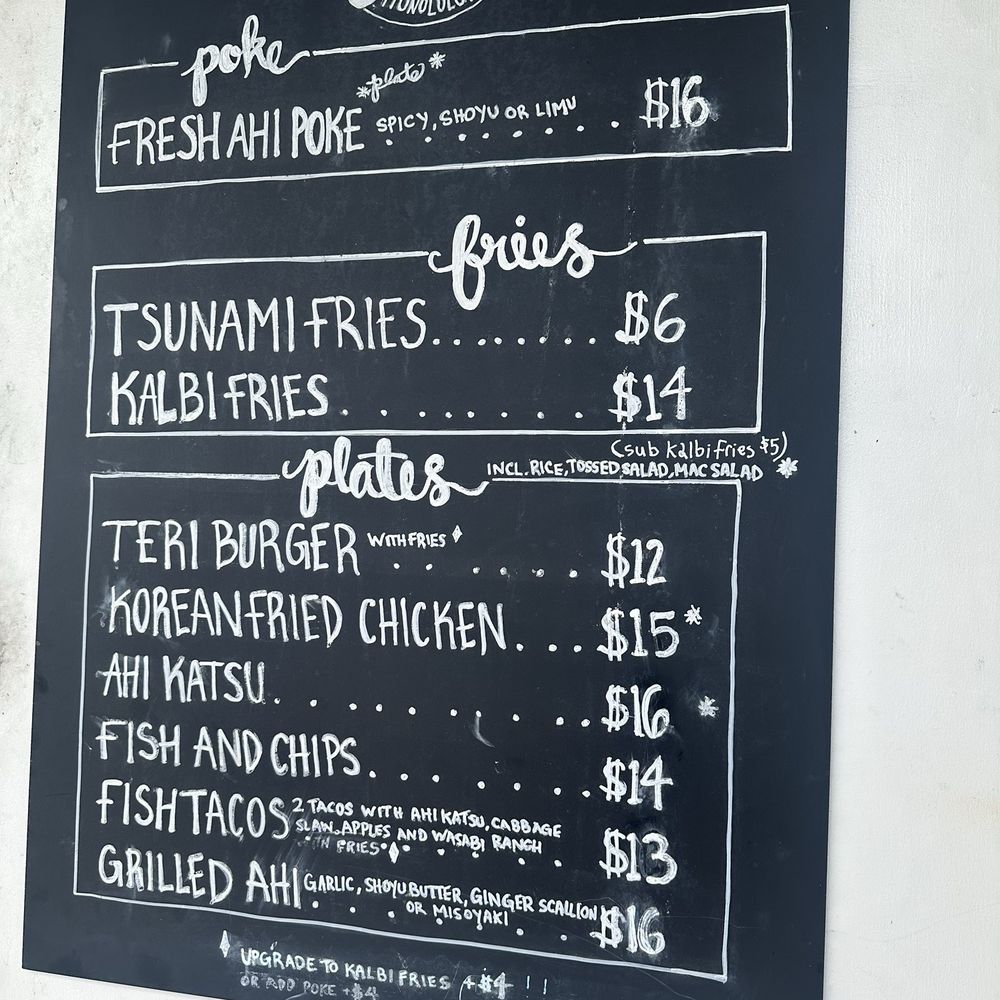 HONOLULU
poke
*plate*
FRESH AHI POKE SPICY, SHOYU OR LIMU . . . . . . . $16
fries
TSUNAMI FRIES........ $6
KALBI FRIES. . . . . . . . . $14
(sub kalbi fries $5)
plates INCL. RICE, TOSSED SALAD, MAC SALAD *
TERI BURGER WITH FRIES ♦ . . . . . . $12
KOREAN FRIED CHICKEN. . . . $15*
AHI KATSU. . . . . . . . . . . $16 *
FISH AND CHIPS. . . . . . . . $14
FISH TACOS 2 TACOS WITH AHI KATSU, CABBAGE
SLAW, APPLES AND WASABI RANCH
WITH FRIES ♦ . . . . . . $13
GRILLED AHI GARLIC, SHOYU BUTTER, GINGER SCALLION
OR MISOYAKI . . . . . . $16
♦ UPGRADE TO KALBI FRIES +$4 !!
OR ADD POKE +$4